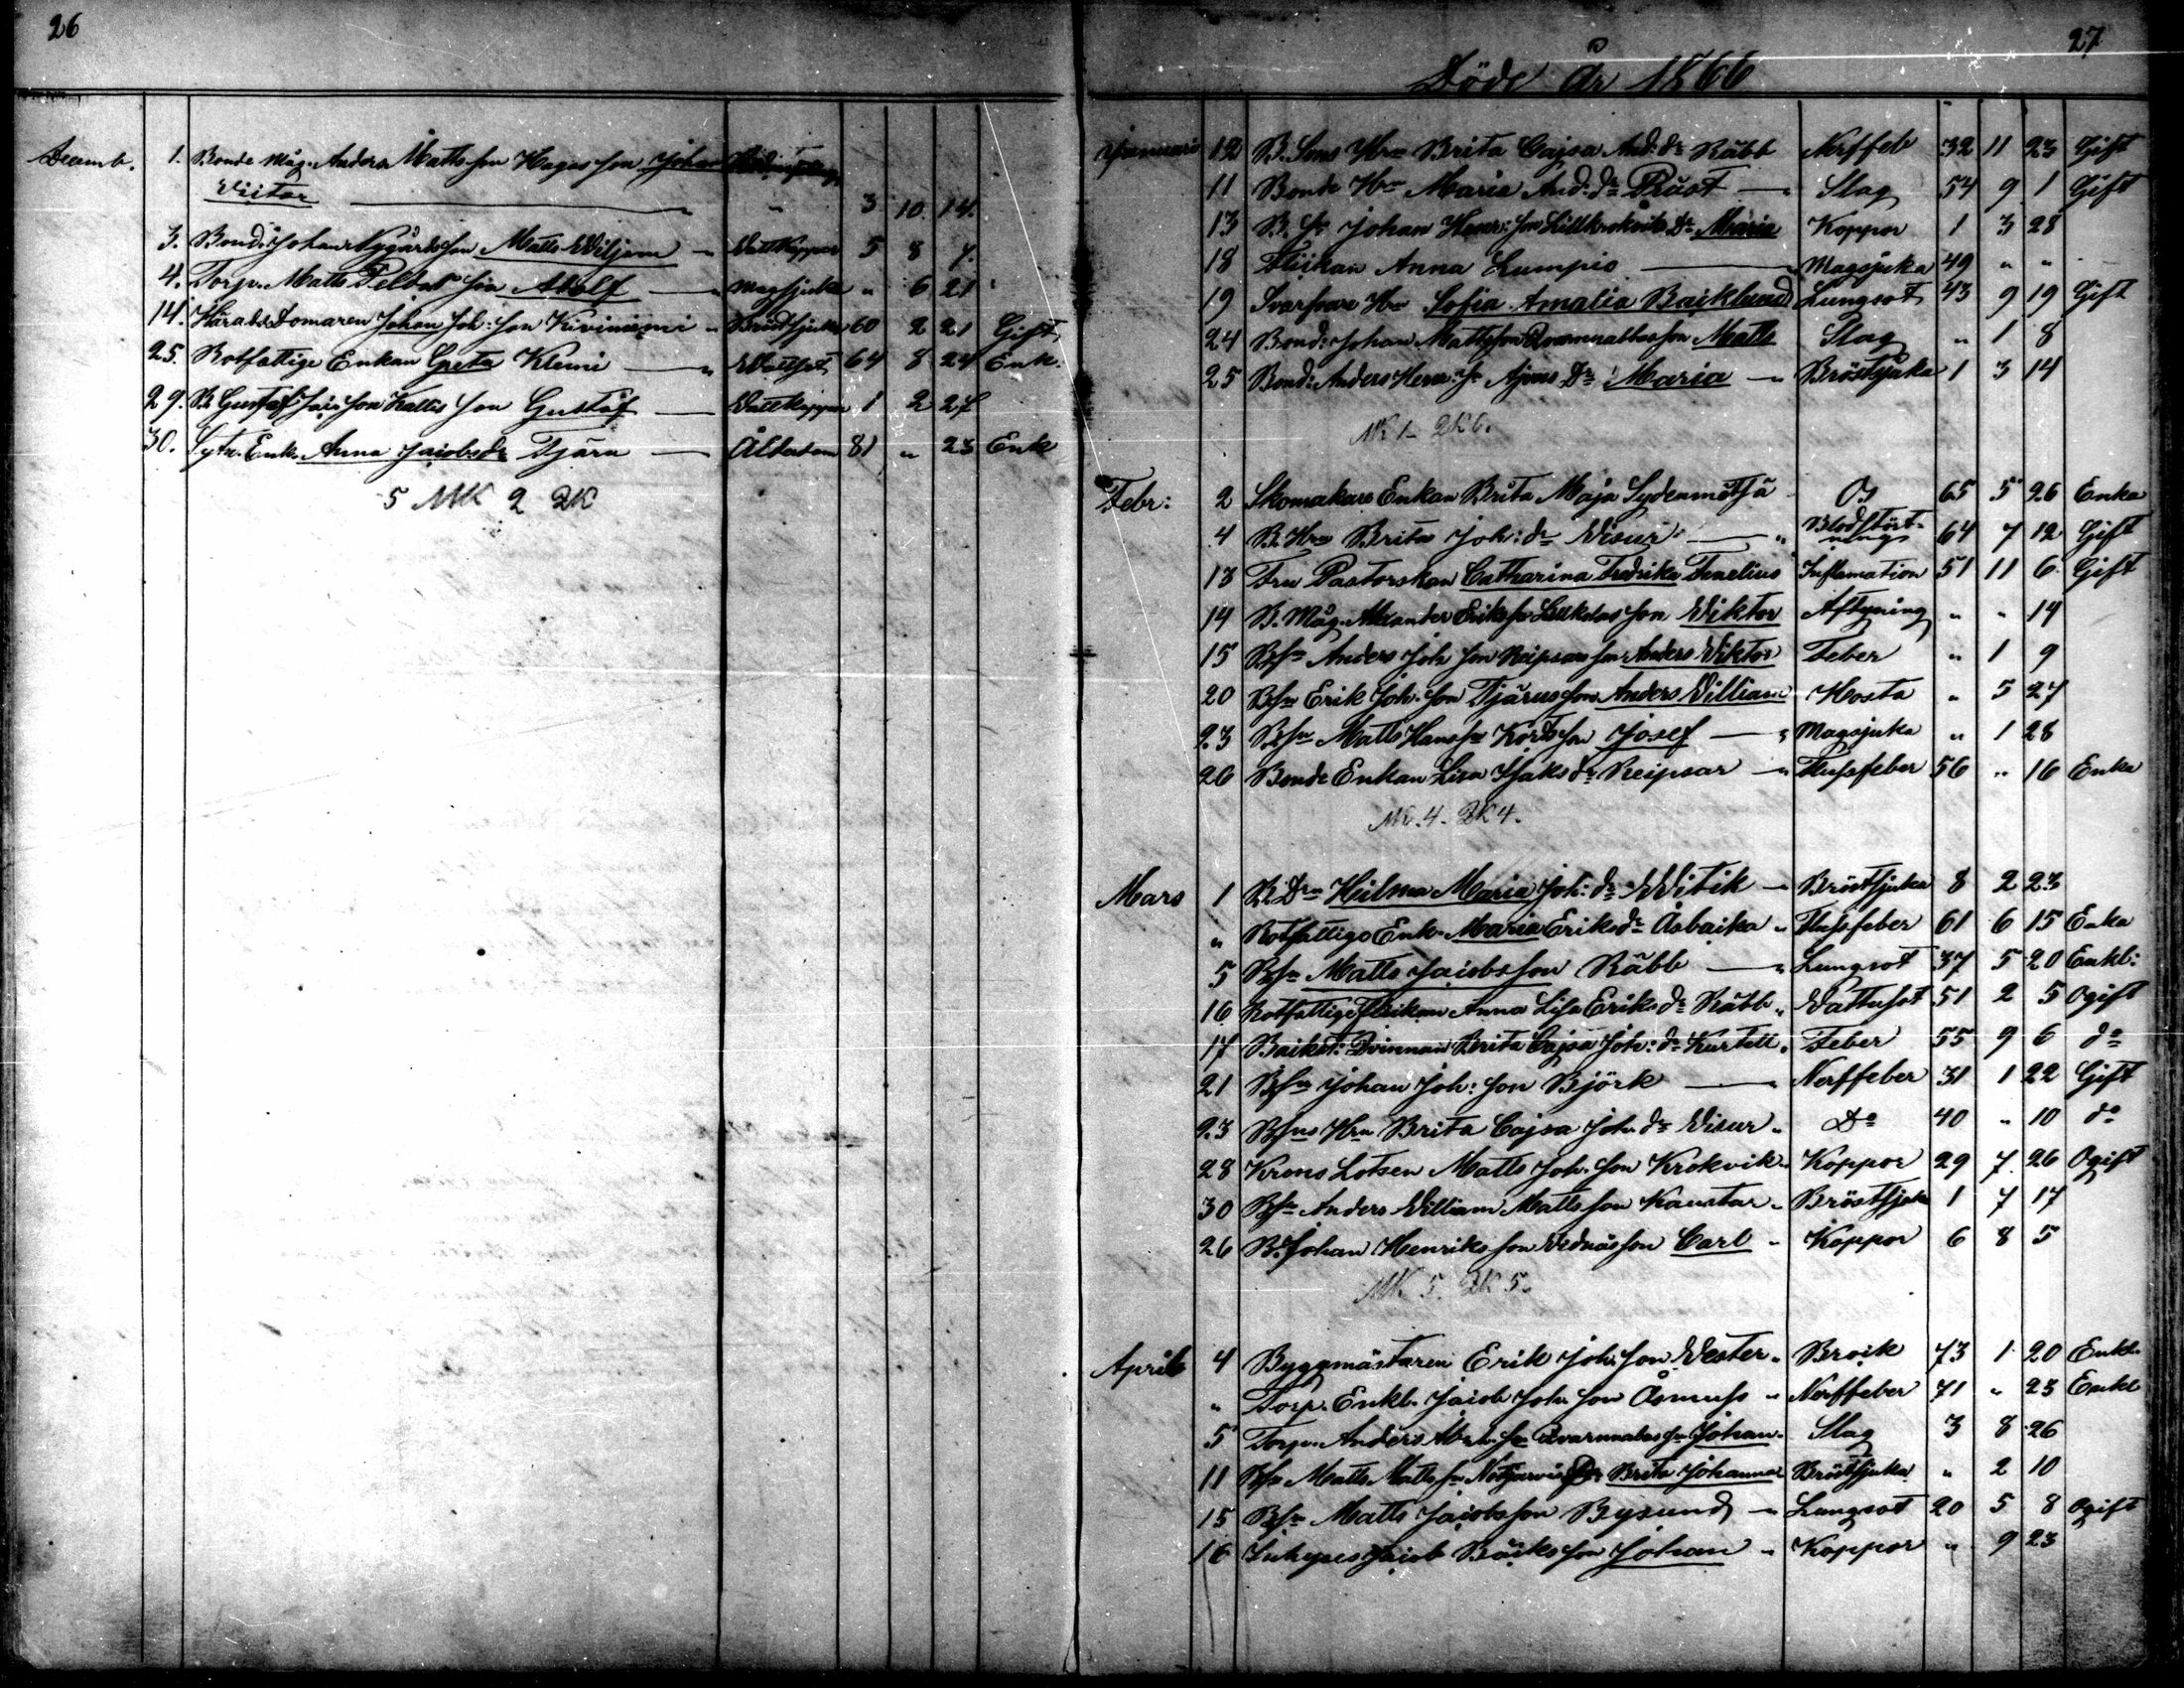 26
Decemb. 1. Bonde Måg. Anders Mattsson Hagas son Johan
Victor 3 10 14.
3. Bond. Johan Nygårds son Matts Wiljam Vattkoppor 5 8 7.
4. Torp. Matts Peltas son Adolf Magsjuka " 6 21
14. Härads Domaren Johan Joh: son Kiviniemi Bröstsjuka 60 2 21 Gift
25. Rotfattige Enkan Greta Klemi Wattsot 64 8 24 Enk.
29. B. Gustaf son Kattis son Gustaf Vattkoppor 1 2 27
30. Sytn. Enk. Anna Jacobsdr Tjäru Ålderdom 81 " 23 Enk
5 MK 2 QK
27
Döde År 1866
Januari 12 B. Sons Hru Brita Cajsa And: dr Räbb Nerffeb 32 11 23 Gift
11 Bonde Hru Maria And: dr Prüst Slag 54 9 1 Gift
13 B. Sn Johan Henr: son Lillkrokviks Dr Maria Koppor 1 3 28
18 Flickan Anna Lumpio Magsjuka 49 " "
19 Svarfvare Hru Sofia Amalia Backlund Lungsot 43 9 19 Gift
24 Bond: Johan Mattsson Qvarnnabbas son Matts Slag " 1 8
25 Bond: Anders Henr: sn Ajous Dr Maria Bröstsjuka 1 3 14
MK 1 QK 6.
Febr: 2 Skomakare Enkan Brita Maja Sydenmetsä Os 65 5 26 Enka
4 B. Hru Brita Joh: dr Visur Blodstört-
ning 64 7 12 Gift
13 Fru Pastorskan Catharina Fredrika Fenelius Inflamation 51 11 6 Gift
14 B. Måg. Alexander Eriksson son Wiktor Aftyning " " 14
15 Bsn Anders Joh son Reipsars son Anders Wiktor Feber " 1 9
20 Bsn Erik Joh. son Tjärus son Anders William Hosta " 5 27
23 Bsn Matts Hans sn Korts son Josef Magsjuka " 1 28
26 Bonde Enkan Lisa Isaks dr Reipsar Flussfeber 56 " 16 Enka
MK. 4. QK 4.
Mars 1 B. Drn Hilma Maria Joh: dr Witik Bröstsjuka 8 2 23
" Rotfattige Enk. Maria Eriksdr Åsbacka Flussfeber 61 6 15 Enka
5 Bsn Matts Jacobsson Räbb Lungsot 37 5 20 Enkl:
16 Rotfattige Flickan Anna Lisa Eriks dr Räbb Wattusot 51 2 5 Ogift
17 Backst: Qvinnan Brita Cajsa Joh: dr Kurtell Feber 55 9 6 do
21 Bsn Johan Joh: son Björk Nerffeber 31 1 22 Gift
23 Bsns Hru Brita Cajsa Joh. dr Visur Do 40 " 10 do
28 Krono Lotsen Matts Joh. son Krokvik Koppor 29 7 26 Ogift
30 Bsn Anders William Matts son Kaustar Bröstsjuka 1 7 17
26 B. Johan Henriks son Vednäs son Carl Koppor 6 8 5
MK 5. QK 5.
April 4 Byggmästaren Erik Joh. son Wester Brock 73 1 20 Enkl.
" Torp. Enkl. Jacob Joh. son Åsnuss Nerffeber 71 " 23 Enkl
5 Torp. Anders sn Qvarnnabas sn Johan Slag 3 8 26
11 Bsn Matts Matts sn Dr Brita Johanna Bröstsjuka " 2 10
15 Bsn Matts Jacobsson Bysund Lungsot 20 5 8 Ogift
16 Inhyses Jacob Bäcks son Johan Koppor " 9 23